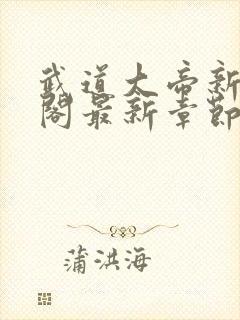 武道大帝新
阁最新章節
蒲洪海